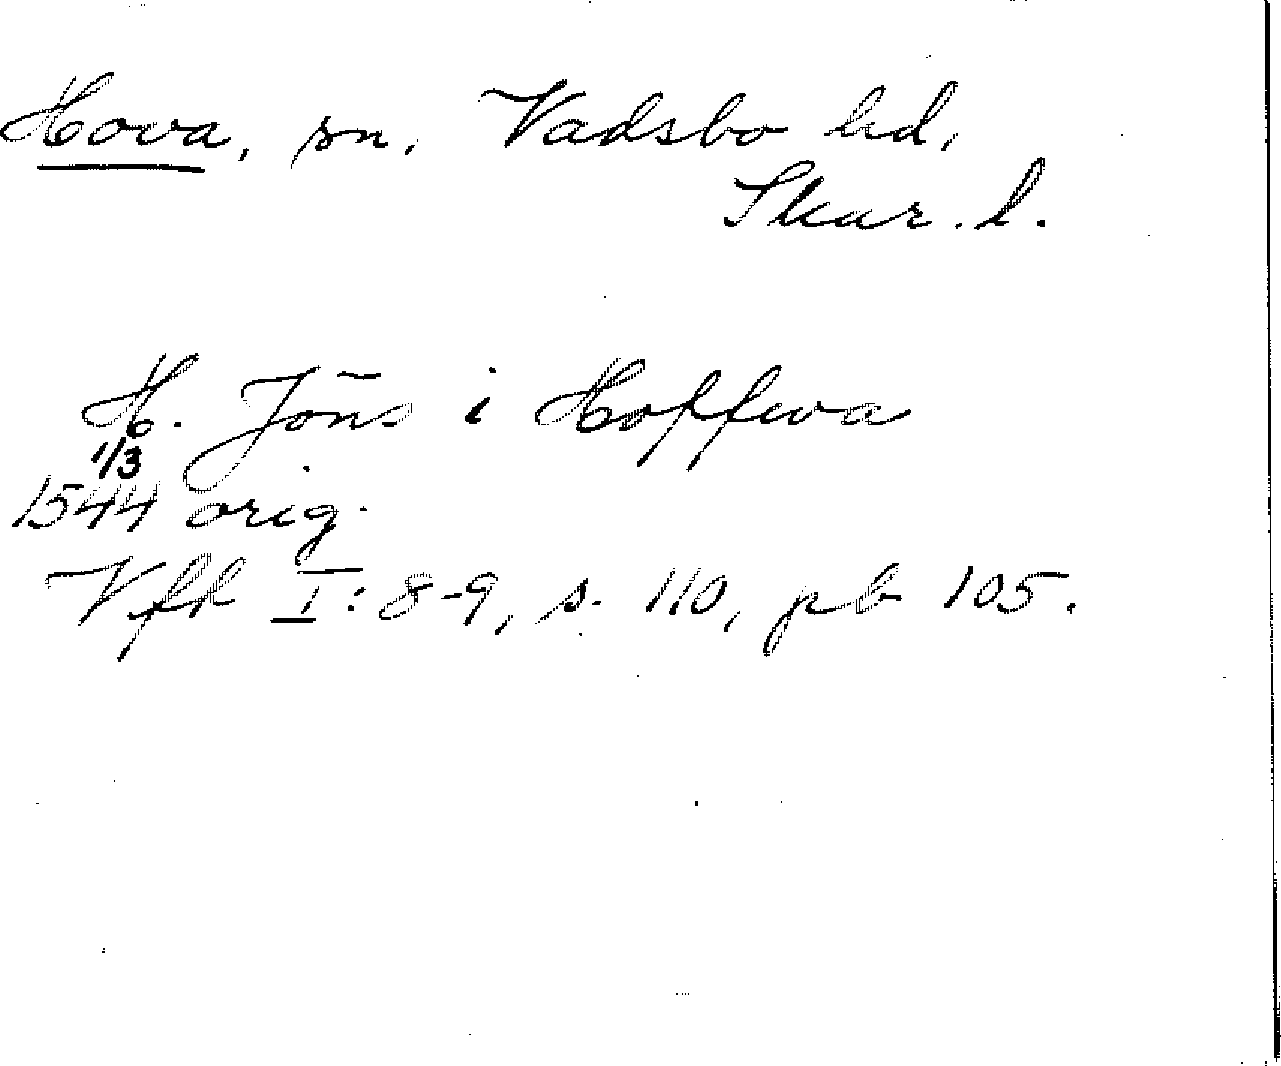 Hova, sn. Vadsbo hd,
Skar. l.
H. Jön̄s i Hoffwa
1/3
1544 orig.
Vfh I: 8-9, s. 110, pb 105.